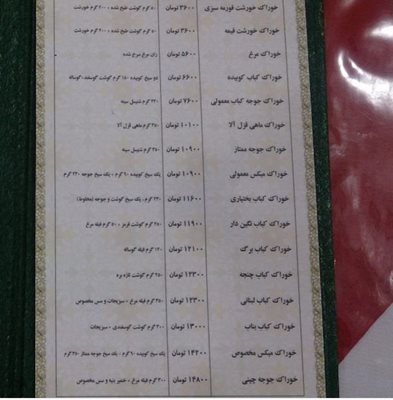 خوراک خورشت قورمه سبزی ۳۶۰۰ تومان ۵۰ گرم گوشت طبخ شده ، ۲۰۰ گرم خورشت
خوراک خورشت قیمه ۳۶۰۰ تومان ۵۰ گرم گوشت طبخ شده ، ۲۰۰ گرم خورشت
خوراک مرغ ۵۶۰۰ تومان ران مرغ سرخ شده
خوراک کباب کوبیده ۶۶۰۰ تومان دو سیخ کوبیده ۱۸۰ گرم گوشت گوسفند ، گوساله
خوراک جوجه کباب معمولی ۷۶۰۰ تومان ۲۳۰ گرم شنیسل سینه
خوراک ماهی قزل آلا ۱۰۱۰۰ تومان ۳۵۰ گرم ماهی قزل آلا
خوراک جوجه ممتاز ۱۰۹۰۰ تومان ۳۵۰ گرم شنیسل سینه
خوراک میکس معمولی ۱۰۹۰۰ تومان یک سیخ کوبیده ۹۰ گرم ، یک سیخ جوجه ۲۳۰ گرم
خوراک کباب بختیاری ۱۱۶۰۰ تومان ۲۳۰ گرم، یک سیخ گوشت و جوجه (مخلوط)
خوراک کباب نگین دار ۱۱۹۰۰ تومان گوشت قرمز ، ۵۰ گرم فیله مرغ
خوراک کباب برگ ۱۲۱۰۰ تومان گرم فیله گوساله
خوراک کباب چنجه ۱۲۳۰۰ تومان ۲۵۰ گرم گوشت تازه بره
خوراک کباب لبنانی ۱۲۳۰۰ تومان ۳۵۰ گرم فیله مرغ ، سبزیجات و سس مخصوص
خوراک کباب بناب ۱۳۰۰۰ تومان گرم گوشت گوسفندی ، سبزیجات
خوراک میکس مخصوص ۱۴۲۰۰ تومان یک سیخ کوبیده ۹۰ گرم ، یک سیخ جوجه ممتاز ۳۵۰ گرم
خوراک جوجه چینی ۱۴۸۰۰ تومان گرم فیله مرغ ، خمیر پنیر و سس مخصوص